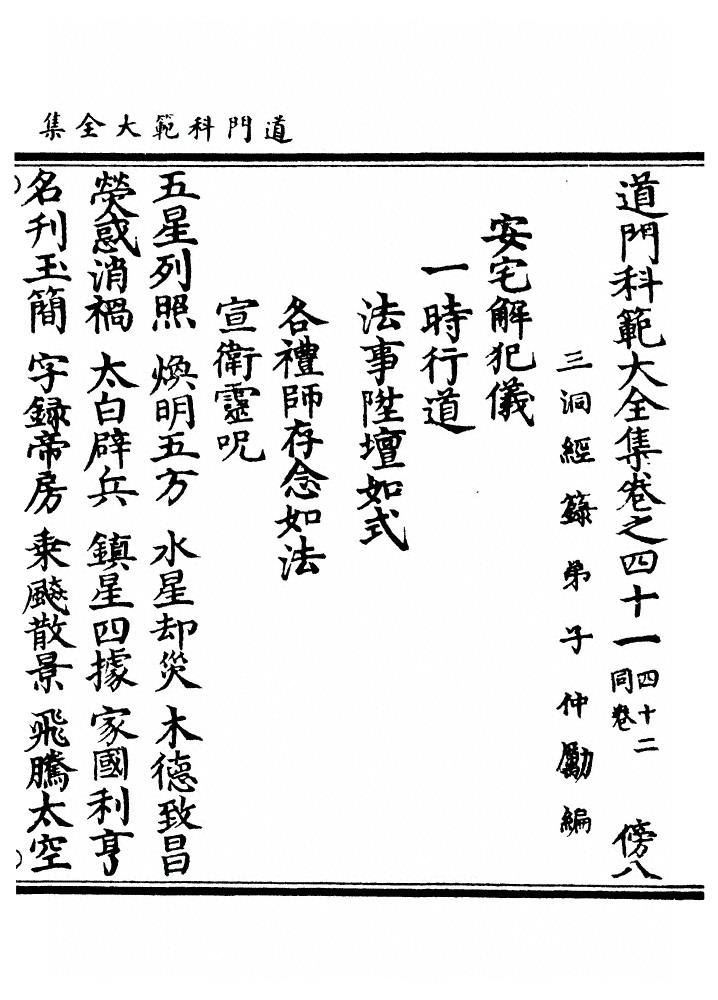 道門科範大全集
道門科範大全集卷之四十一 四十二同卷 傍八
三洞經籙弟子仲勵編
安宅解犯儀
一時行道
法事陞壇如式
各禮師存念如法
宣衛靈呪
五星列照 煥明五方 水星却災 木德致昌
熒惑消禍 太白辟兵 鎮星四據 家國利亨
名刋玉簡 字録帝房 乘飈散景 飛騰太空